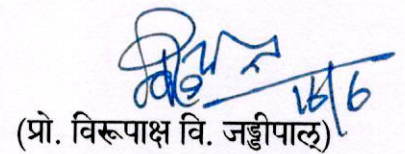 16/6
(प्रो. विरूपाक्ष वि. जड्डीपाल्)